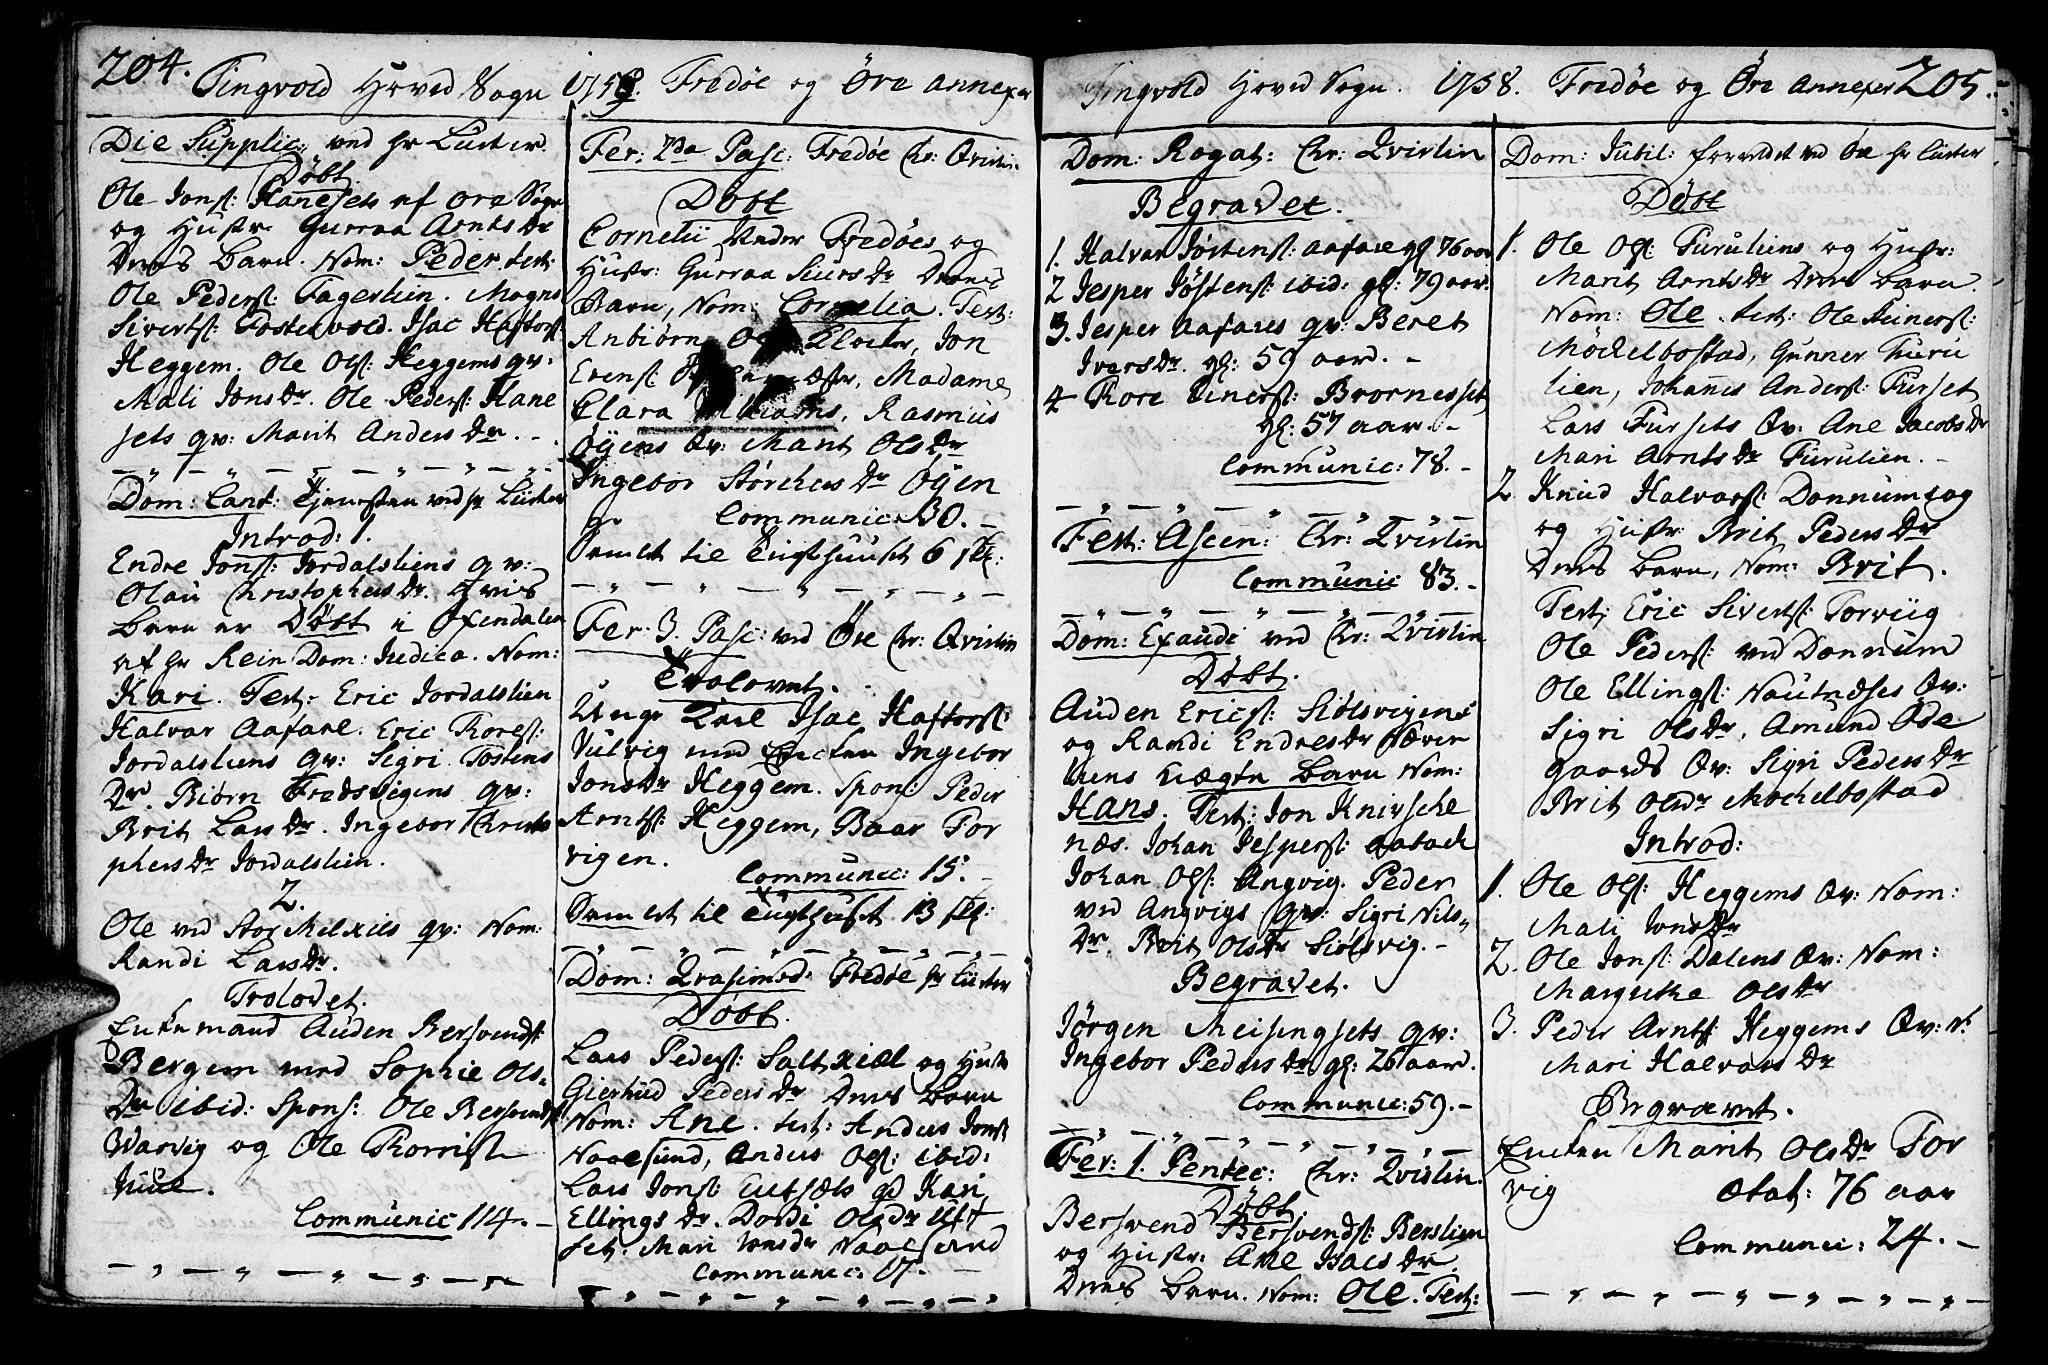 204. Tingvold Hoved Sogn 1758. Fredöe og Öre annexer
Die Supplic: ved hr Lüster.
Döbt
Ole Jons: Hanesets af Öre Sogn
og Hustr. Gurraa Arnts Dr
Deres Barn. Nom: Peder. test:
Ole Peders: Fagerlien. Mogns
Siverts: Fosterwold. Isac Haftors:
Heggem. Ole Ols: Heggems qv:
Mali Jons Dr. Ole Peders: Hane
sets qv: Marit Anders Dr. -.
Dom: Cant: Tjenesten ved hr Lüster
Introd: 1.
Endre Jons: Jordalsliens qv:
Olau Christophers Dr. hvis
Barn er Döbt i Öxendalen
af hr Rein Dom: Judica. Nom:
Kari. Test: Eric Jordalslien
Halvar Aafarl. Eric Tores:
Jordalsliens qv: Sigri Tostens
Dr. Biörn Fredsvigens qv:
Brit Lars Dr. Ingebor Christo
phers Dr Jordalslien.
2.
Ole ved Stor Melxils qv: Nom:
Randi Lars Dr.
Trolovet.
Enkemand Auden Bersvends:
Bergem med Sophie Ols-
Dr ibid: Spons: Ole Bersvends:
Warvig og Ole
Juul.
Communic 114. -
Fer: 2da Pasc: Fredöe Chr: Qvistin.
Döbt
Cornelii Fredöes og
Hustr: Gurraa Siurs Dr Deres
Barn, Nom: Cornelia. Test:
Anbiörn Klocker, Jon
Evens: Madame
Clara Rasmus
Öyens Qv: Marit Ols Dr
Ingebor Störchers Dr Öyen
Communic: 30. -
Samlet til Tugthuuset 6 sk:
Fer: 3. Pasc: ved Öre Chr: Qvistin
Trolovet.
Unge Karl Isac Haftors:
Vulvig med Encken Ingebor
Jons Dr Heggem. Spons: Peder
Arnts: Heggem, Baar Tor
vigen.
Communic: 15. -
Samlet til Tugthuset 13 sk:
Dom: Quasimod: Fredöe hr Lüster
Döbt.
Lars Peders: Saltkiel og Hustr
Giertrud Peders Dr Deres Barn
Nom: Ane. test: Anders Jons:
Naaesund, Anders Ols: ibid:
Lars Jons: qv Kari
Ellings Dr. Dordi Ols Dr
set: Mari Jons Dr Naaesund
Communic: 17. -
Tingvold Hoved Sogn. 1758. Fredöe og Öre Annexer 205.
Dom: Rogat: Chr: Qvistin
Begravet.
1. Halvar Jöstens: aafarl gl 76 aar
2 Jesper Jöstens: ibid: gl: 79 aar.
3. Jesper aafares qv: Beret
Ivers Dr. gl: 59 aard. -
4 Tore Einers: Brornesset
gl: 57 aar. -
Communic: 78. -
Fest: Ascen: Chr: Qvistin
Communic 83. -
Dom: Exaudi ved Chr: Qvistin
Döbt.
Auden Erics: Siölsvigens
og Randi Endres Dr
liens Uægte Barn Nom:
Hans. Test: Jon Knirsche
næs. Johan Jespers: aabach
Johan Ols: Angvig. Peder
ved Angvigs qv: Sigri Nils-
Dr. Brit Ols Dr Siölsvig. -
Begravet.
Jörgen Meisingsets qv:
Ingebor Peders Dr gl: 26 aard.
Communic: 59. -
Fer: 1. Pentec: Chr: Qvistin.
Döbt.
Bersvend Bersvends: Berslien
og Hustr: Ane Isacs Dr.
Deres Barn. Nom: Ole. Test:
Dom: Jubil: forrettet ved Öre hr Lüster
Döbt
1. Ole Ols: Furuliens og Hustr:
Marit Arnts Dr Deres Barn.
Nom: Ole. test: Ole Einers:
Möckelbostad, Gunner Furu
lien, Johannes Anders: Furset
Lars Fursets Qv: Ane Jacobs Dr
Mari Arnts Dr Furulien. -
2 Knud Halvars: Donnumhog
og Hustr: Brit Peders Dr
Deres Barn, Nom: Brit.
Test: Eric Siverts: Torviig
Ole Peders: ved Donnum
Ole Ellings: Nautneses Qv:
Sigri Ols Dr, Amund Öde
gaards Qv: Sigri Peders Dr
Brit Ols Dr Mockelbostad
Introd:
1. Ole Ols: Heggems Qv: Nom:
Mali Jons Dr
2. Ole Jons: Dalens Qv: Nom:
Margrethe Ols Dr
3. Peder Arnts: Heggems Qv: N:
Mari Halvars Dr
Begravet.
Encken Marit Ols Dr Tor
vig ætat: 76 aar
Communic: 24. -